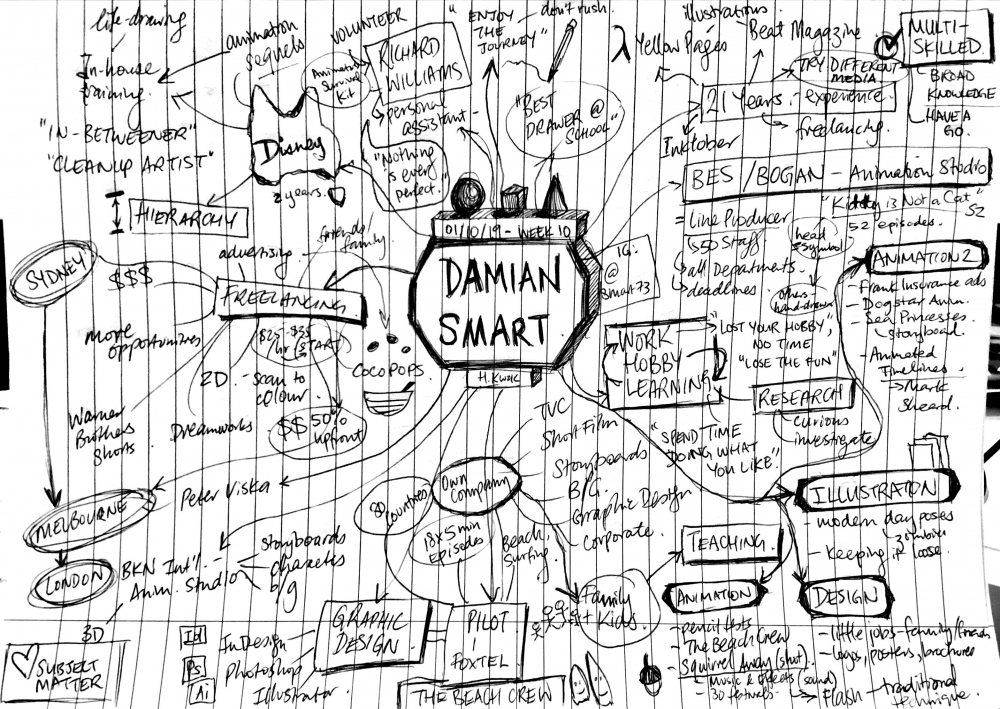 life-drawing
In-house
training.
animation
sequels
"IN-BETWEENER"
"CLEANUP ARTIST"
Disney
2 years.
HIERARCHY
Animators
Survival
Kit
VOLUNTEER
RICHARD
WILLIAMS
personal
assistant
"Nothing
is ever
perfect."
"ENJOY
THE
JOURNEY"
don't rush.
"BEST
DRAWER @
SCHOOL"
illustrations
Yellow Pages
Beat Magazine
TRY DIFFERENT
MEDIA
MULTI-
SKILLED.
BROAD
KNOWLEDGE
HAVE A
GO.
21 Years - experience.
freelancing.
Inktober
BES / BOGAN - Animation Studio
= Line Producer
(S50 Staff
all Departments.
deadlines.
"Kitty is Not a Cat"
S2
52 episodes.
head
= symbol
others
hand-drawn
01/10/19 - WEEK 10
DAMIAN
SMART
H. KWOK
IG:
@
Smart73
SYDNEY
$$$
more
opportunities
advertising
friends
family
FREELANCING
$25-$35
hr (START)
2D - scan to
colour.
$$ 50%
upfront
COCO POPS
Warner
Brothers
Shorts
Dreamworks
Peter Viska
MELBOURNE
LONDON
BKN Int'l. -
Anm. Studio
storyboards
characters
b/g
3D
SUBJECT
MATTER
WORK
HOBBY
LEARNING
"LOST YOUR HOBBY",
NO TIME
"LOSE THE FUN"
RESEARCH
curious
investigate
"SPEND TIME
DOING WHAT
YOU LIKE".
ANIMATION 2
- Frank Insurance ads
- Dogstar Anm.
- Sea Princesses
storyboad.
- Animated
Timelines
Mark
Sheard.
Own
Company
80
countries
18x5 min
Episodes
Beach,
Surfing
TVC
Short Film
Storyboards
B/G
Graphic Design
Corporate.
Family
+ Kids.
TEACHING.
ILLUSTRATION
- modern day poses
zombies
- Keeping it loose.
ANIMATION
- pencil tests
- The Beach Crew
- Squirrel Away (shut)
Music & Effects (sound)
DESIGN
- little jobs - family/friends
- logos, posters, brochures
- Flash - traditional
technique.
Id InDesign
Ps Photoshop
Ai Illustrator
GRAPHIC
DESIGN
PILOT
FOXTEL
THE BEACH CREW